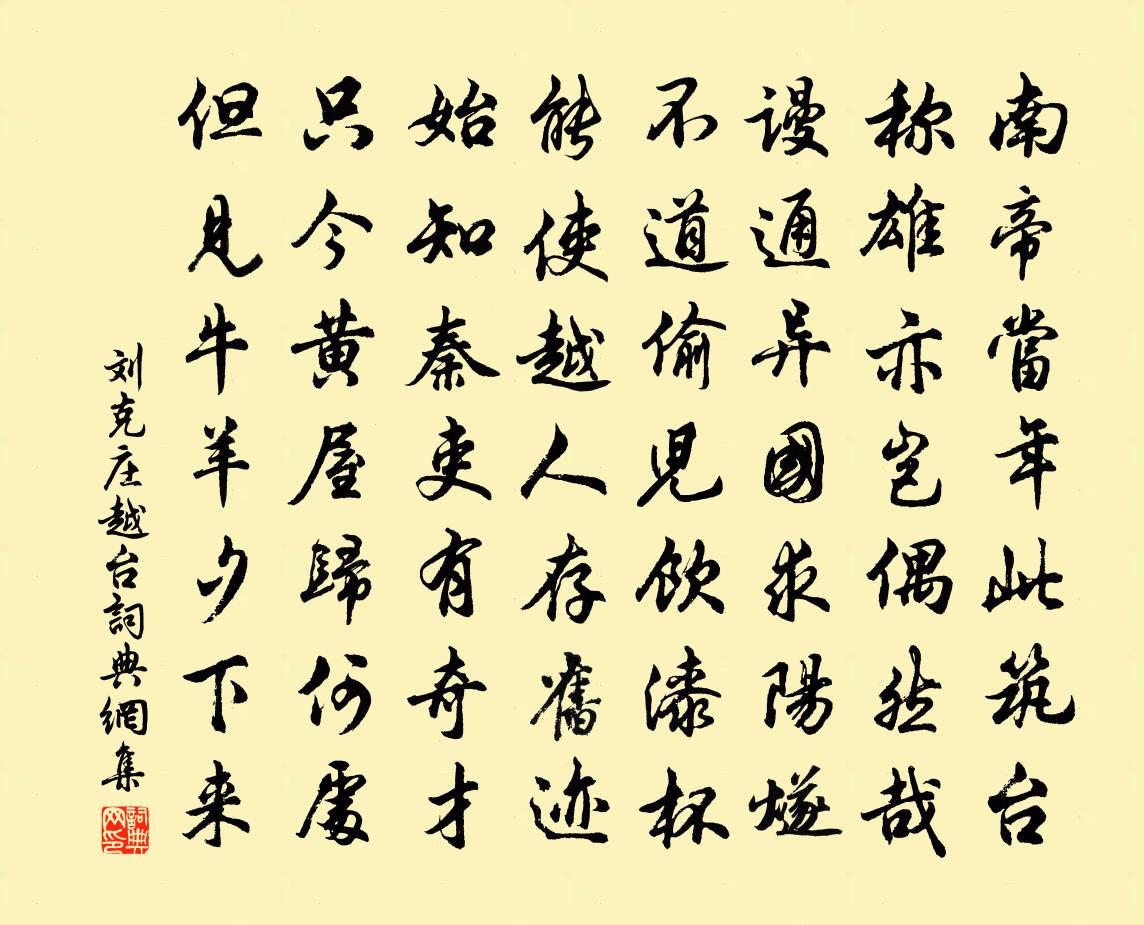 南帝當年此筑台
称雄亦岂偶然哉
謾通异國求陽燧
不道偷児飲漆杯
能使越人存舊迹
始知秦吏有奇才
只今黄屋歸何處
但見牛羊夕下来
刘克庄越台詞典網集
詞典网印